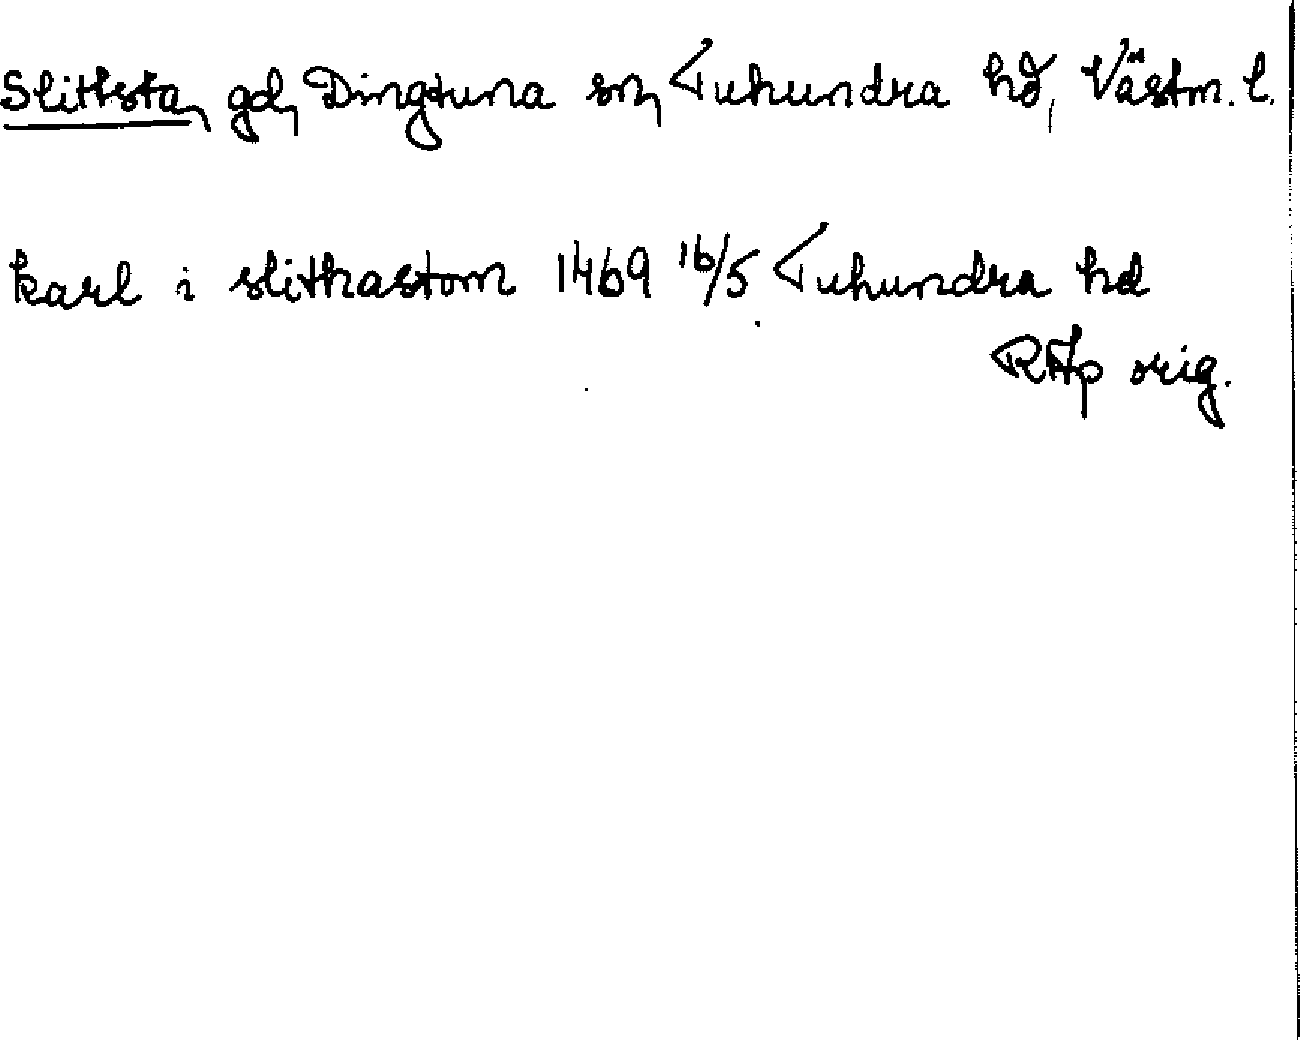 Slittsta, gd, Dingtuna sn, Tuhundra hd, Västm. l.
karl i slithastom 1469 16/5 Tuhundra hd
RAp orig.